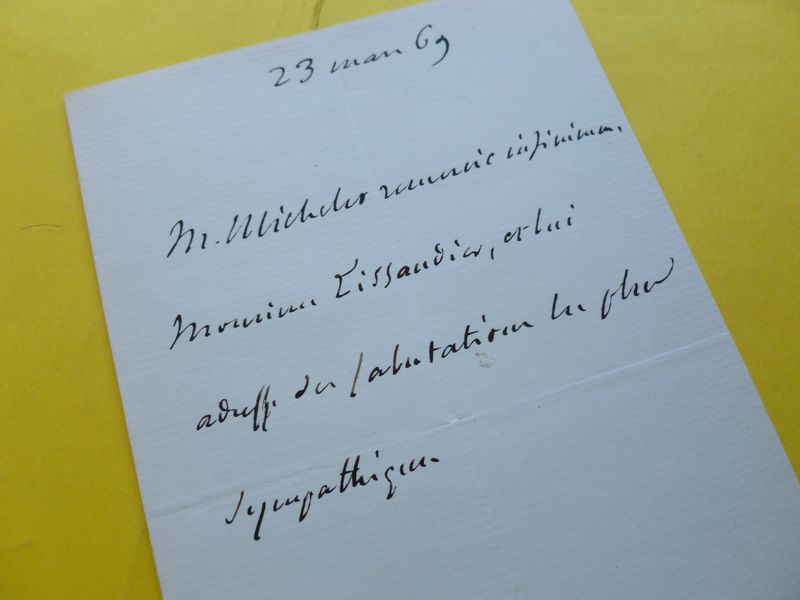 23 mars 69
M. Michelet remercie infiniment
Monsieur Tissandier, et lui
adresse des salutations les plus
sympathiques